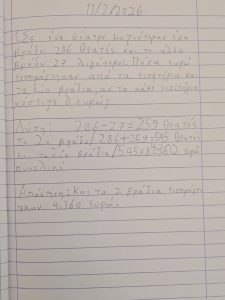 11/2/2026
1. Σε ένα θέατρο μαζεύτηκαν ένα
βράδυ 286 θεατές και το άλλο
βράδυ 27 λιγότεροι. Πόσα ευρώ
εισπράχτηκαν από τα εισιτήρια και
τα δύο βράδια, αν το κάθε εισιτήριο
κόστιζε 8 ευρώ;
Λύση: 286-27=259 θεατές
το 2ο βράδυ/286+259=545 θεατές
και τα δύο βράδια/545x8=4360 ευρώ
συνολικά
Απάντηση: Και τα 2 βράδια εισπράχ-
τηκαν 4.360 ευρώ.